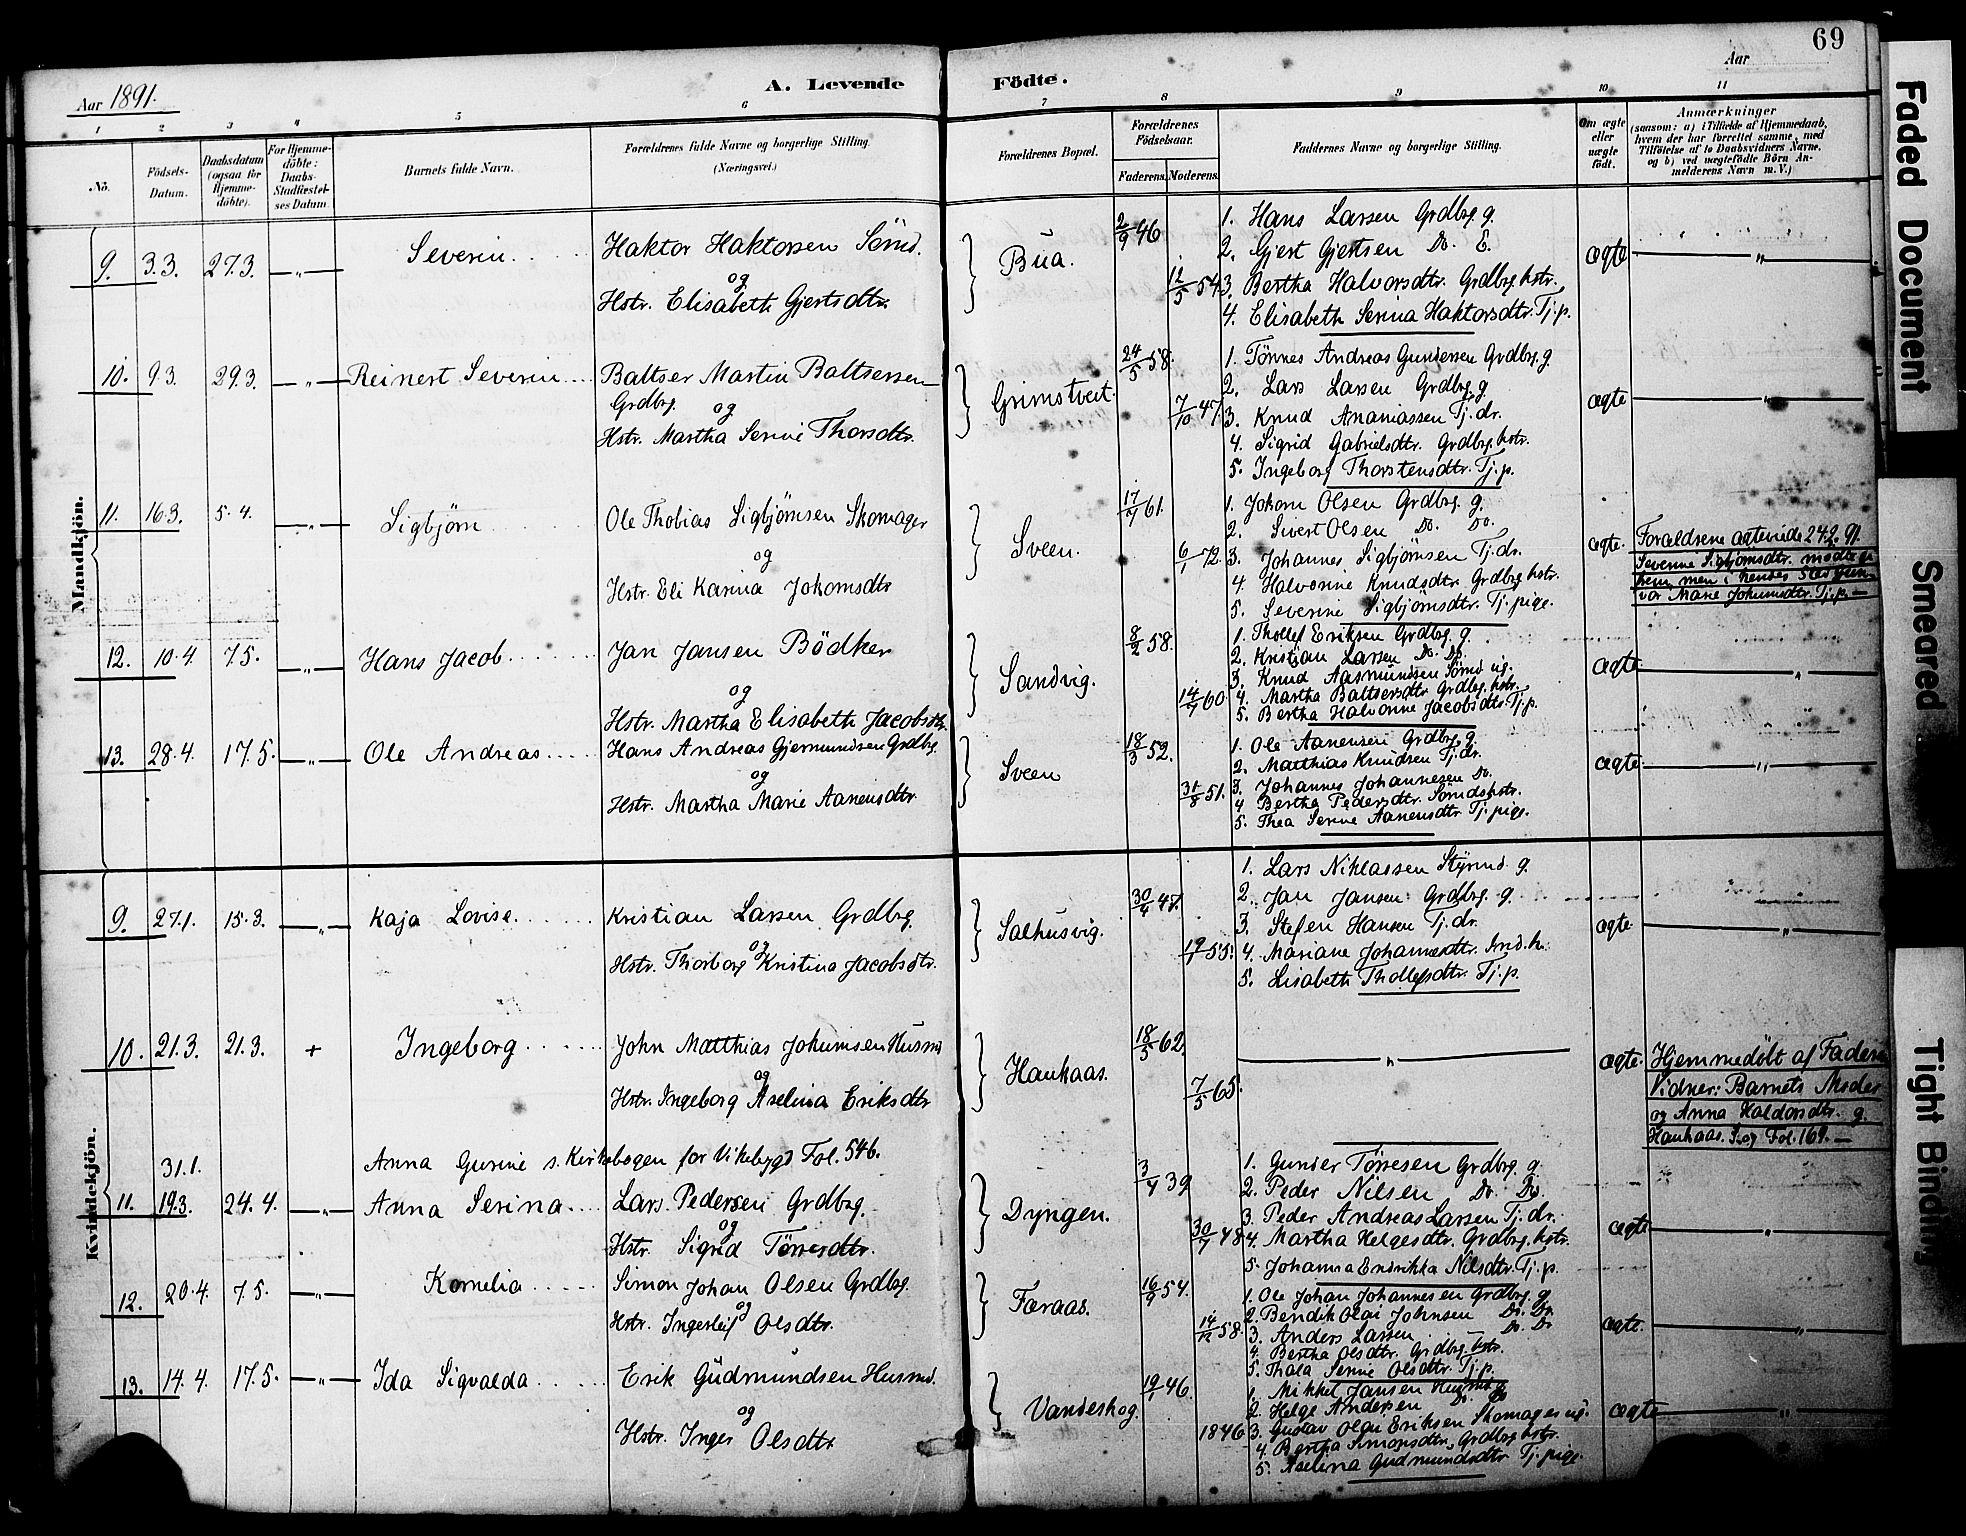 69
Aar 1891.
A. Levende Födte.
Aar
1 2 3 4 5 6 7 8 9 10 11
No.
Födsels-Datum.
Daabsdatum (ogsaa for Hjemme-döbte).
For Hjemme-döbte: Daabs-Stadfæstel-ses Datum.
Barnets fulde Navn.
Forældrenes fulde Navne og borgerlige Stilling. (Næringsvei.)
Forældrenes Bopæl.
Forældrenes Födselsaar.
Faderens. Moderens.
Faddernes Navne og borgerlige Stilling.
Om ægte eller uægte födt.
Anmærkninger
(saasom: a) i Tilfælde af Hjemmedaab, hvem der har forrettet samme, med Tilföielse af to Daabsvidners Navne, og b) ved uægtefödte Börn An-melderens Navn m. V.)
Mandkjön.
9. 3.3. 27.3. —"— Severin
Haktor Haktorsen
og
Hstr. Elisabeth Gjertsdtr.
Bua.
2/9 46
12/5 54
1. Hans Larsen Grdbrg. g.
2. Gjert Gjertsen Do. E.
3. Bertha Halvorsdtr. Grdbrg. hstr.
4. Elisabeth Serina Haktorsdtr. Tj. p.
ægte —"—
10. 9.3. 29.3. —"— Reinert Severin
Baltser Martin Baltsersen
Grdbrg.
og
Hstr. Martha Serine Thorsdtr.
Grimstveit.
24/5 58.
7/10 47.
1. Tönnes Andreas Gundersen Grdbrg. g.
2. Lars Larsen Grdbrg. g
3. Knud Ananiassen Tj. dr.
4. Sigrid Gabrielsdtr. Grdbrg. hstr.
5. Ingeborg Thorstensdtr. Tj. p.
ægte —"—
11. 16.3. 5.4. —"— Sigbjörn
Ole Thobias Sigbjörnsen Skomager
og
Hstr. Eli Karina Jokomsdtr
Sveen.
17/7 61.
6/1 72.
1. Jokom Olsen Grdbrg. g.
2. Sivert Olsen Do. Do.
3. Johannes Sigbjörnsen Tj. dr.
4. Halvorine Knudsdtr. Grdbrg. hstr.
5. Severine Sigbjörnsdtr. Tj. pige.
ægte.
Forældrene ægteviede 24.2.91.
Severine Sigbjörnsdtr. modte ei
frem, men i hendes Sted
var Marie Jokumsdtr. Tj. p. —
12. 10.4. 7.5. —"— Hans Jacob
Jan Jansen Bödker
og
Hstr. Martha Elisabeth Jacobsdtr.
Sandvig.
8/2 58.
14/7 60
1. Thollef Eriksen Grdbrg. g.
2. Kristian Larsen Do. Do.
3. Knud Aasmundsen Sömd ug.
4. Martha Baltsersdtr. Grdbrg. hstr.
5. Bertha Halvorine Jacobsdtr. Tj. p.
ægte —"—
13. 28.4. 17.5. —"— Ole Andreas
Hans Andreas Gjermundsen Grdbrg.
og
Hstr. Martha Marie Aanensdtr
Sveen
18/3 52.
31/8 51.
1. Ole Aanensen Grdbrg. g
2. Matthias Knudsen Tj. dr.
3. Johannes Johannesen Do.
4 Bertha Pedersdtr. Sömdshstr.
5. Thea Serine Aanensdtr Tj. pige.
ægte —"—
Kvindekjön.
9. 27.1. 15.3. —"— Kaja Lovise.
Kristian Larsen Grdbrg.
og
Hstr. Thorborg Kristina Jacobsdtr.
Salhusvig.
30/4 47.
19/7 55.
1. Lars Niklassen Styrmd. g.
2. Jan Jansen Grdbrg. g
3. Stefen Hansen Tj. dr.
4. Mariane Johannesdtr.
5. Lisabeth Thollefsdtr. Tj. p
ægte. —"—
10. 21.3. 21.3. + Ingeborg
John Matthias Jokumsen Husmd
og
Hstr. Ingeborg Aselina Eriksdtr
Haukaas.
18/5 62.
7/5 65.
—"—
ægte.
Hjemmedöbt af Faderen
Vidner: Barnets Moder
og Anna Haldorsdtr. g.
Haukaas. Fol. 169. —
31.1. Anna Gurine s. Kirkebogen for Vikebygd Fol. 546.
11. 19.3. 24.4. —"— Anna Serina
Lars Pedersen Grdbrg.
og
Hstr. Sigrid Törresdtr.
Dyngen.
3/4 39
30/7 48
1. Gunder Törresen Grdbrg. g.
2. Peder Nilsen Do. Do.
3. Peder Andreas Larsen Tj. dr.
4. Martha Helgesdtr. Grdbrg. hstr.
5. Johanna Endrikka Nilsdtr. Tj. p.
ægte —"—
12. 20.4. 7.5. —"— Kornelia
Simon Johan Olsen Grdbrg.
og
Hstr. Ingerleif Olsdtr.
Færaas.
16/9 54.
14/12 58.
1. Ole Johan Johannesen Grdbrg. g
2. Bendik Olai Johnsen Do. Do.
3. Anders Larsen Do. Do
4. Bertha Olsdtr. Grdbrg. hstr.
5. Thala Serine Olsdtr. Tj. p.
ægte. —"—
13. 14.4. 17.5. —"— Ida Sigvalda
Erik Gudmundsen Husmd.
og
Hstr. Inger Olsdtr
Vandeskog.
19/1 46.
1846
1. Mikkel Jansen Husmd. g
2. Helge Andersen Do. Do
3. Gustav Olai Eriksen Skomager ug.
4. Bertha Simonsdtr. Grdbrg. hstr.
5. Aselina Gudmundsdtr Tj. pige.
ægte —"—
Faded Document
Smeared
Tight Binding